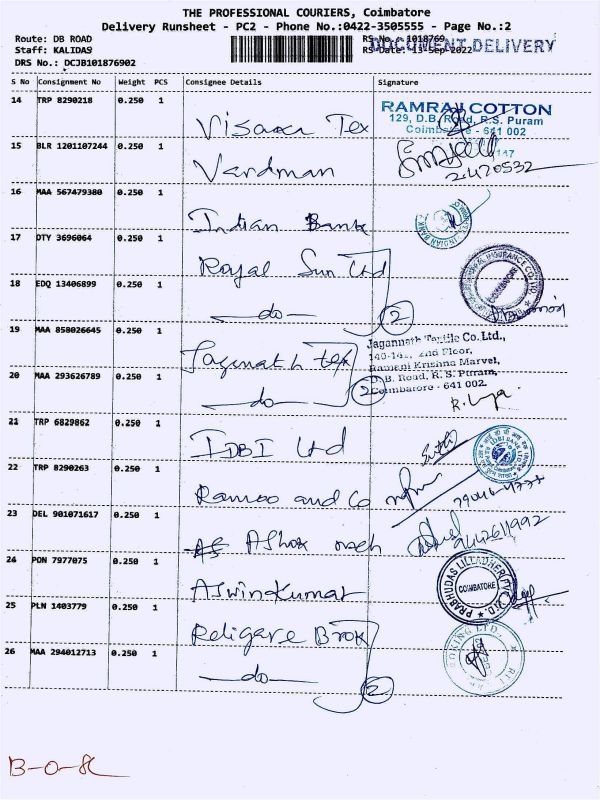 THE PROFESSIONAL COURIERS, Coimbatore
Delivery Runsheet - PC2 - Phone No.:0422-3505555 - Page No.:2
Route: DB ROAD
RS No.: 1018769
DOCUMENT DELIVERY
Staff: KALIDAS
RS Date: 13-Sep-2022
DRS No.: DCJB101876902
S No Consignment No Weight PCS Consignee Details Signature
14 TRP 8290218 0.250 1
Visaka Tex
RAMRAJ COTTON
129, D.B. Road, R.S. Puram
Coimbatore - 641 002
15 BLR 1201107244 0.250 1
Vardman
2470532
16 MAA 567479380 0.250 1
Indian Bank
17 DTY 3696064 0.250 1
Royal Sun Ltd
18 EDQ 13406899 0.250 1
—do— 2
COIMBATORE
19 MAA 858026645 0.250 1
Jaginath Tex
Jagannath Textile Co. Ltd.,
140-142, 2nd Floor,
Ramani Krishna Marvel,
D.B. Road, R.S. Puram,
Coimbatore - 641 002
20 MAA 293626789 0.250 1
—do— 2
21 TRP 6829862 0.250 1
IDBI Ltd
22 TRP 8290263 0.250 1
Ramoo and Co
23 DEL 901071617 0.250 1
Ashok
9442611992
24 PON 7977075 0.250 1
Aswinkumar
PRABHUDAS LILTADHER PVT. LTD.
COIMBATORE
25 PLN 1403779 0.250 1
Religare Brok
26 MAA 294012713 0.250 1
—do— 2